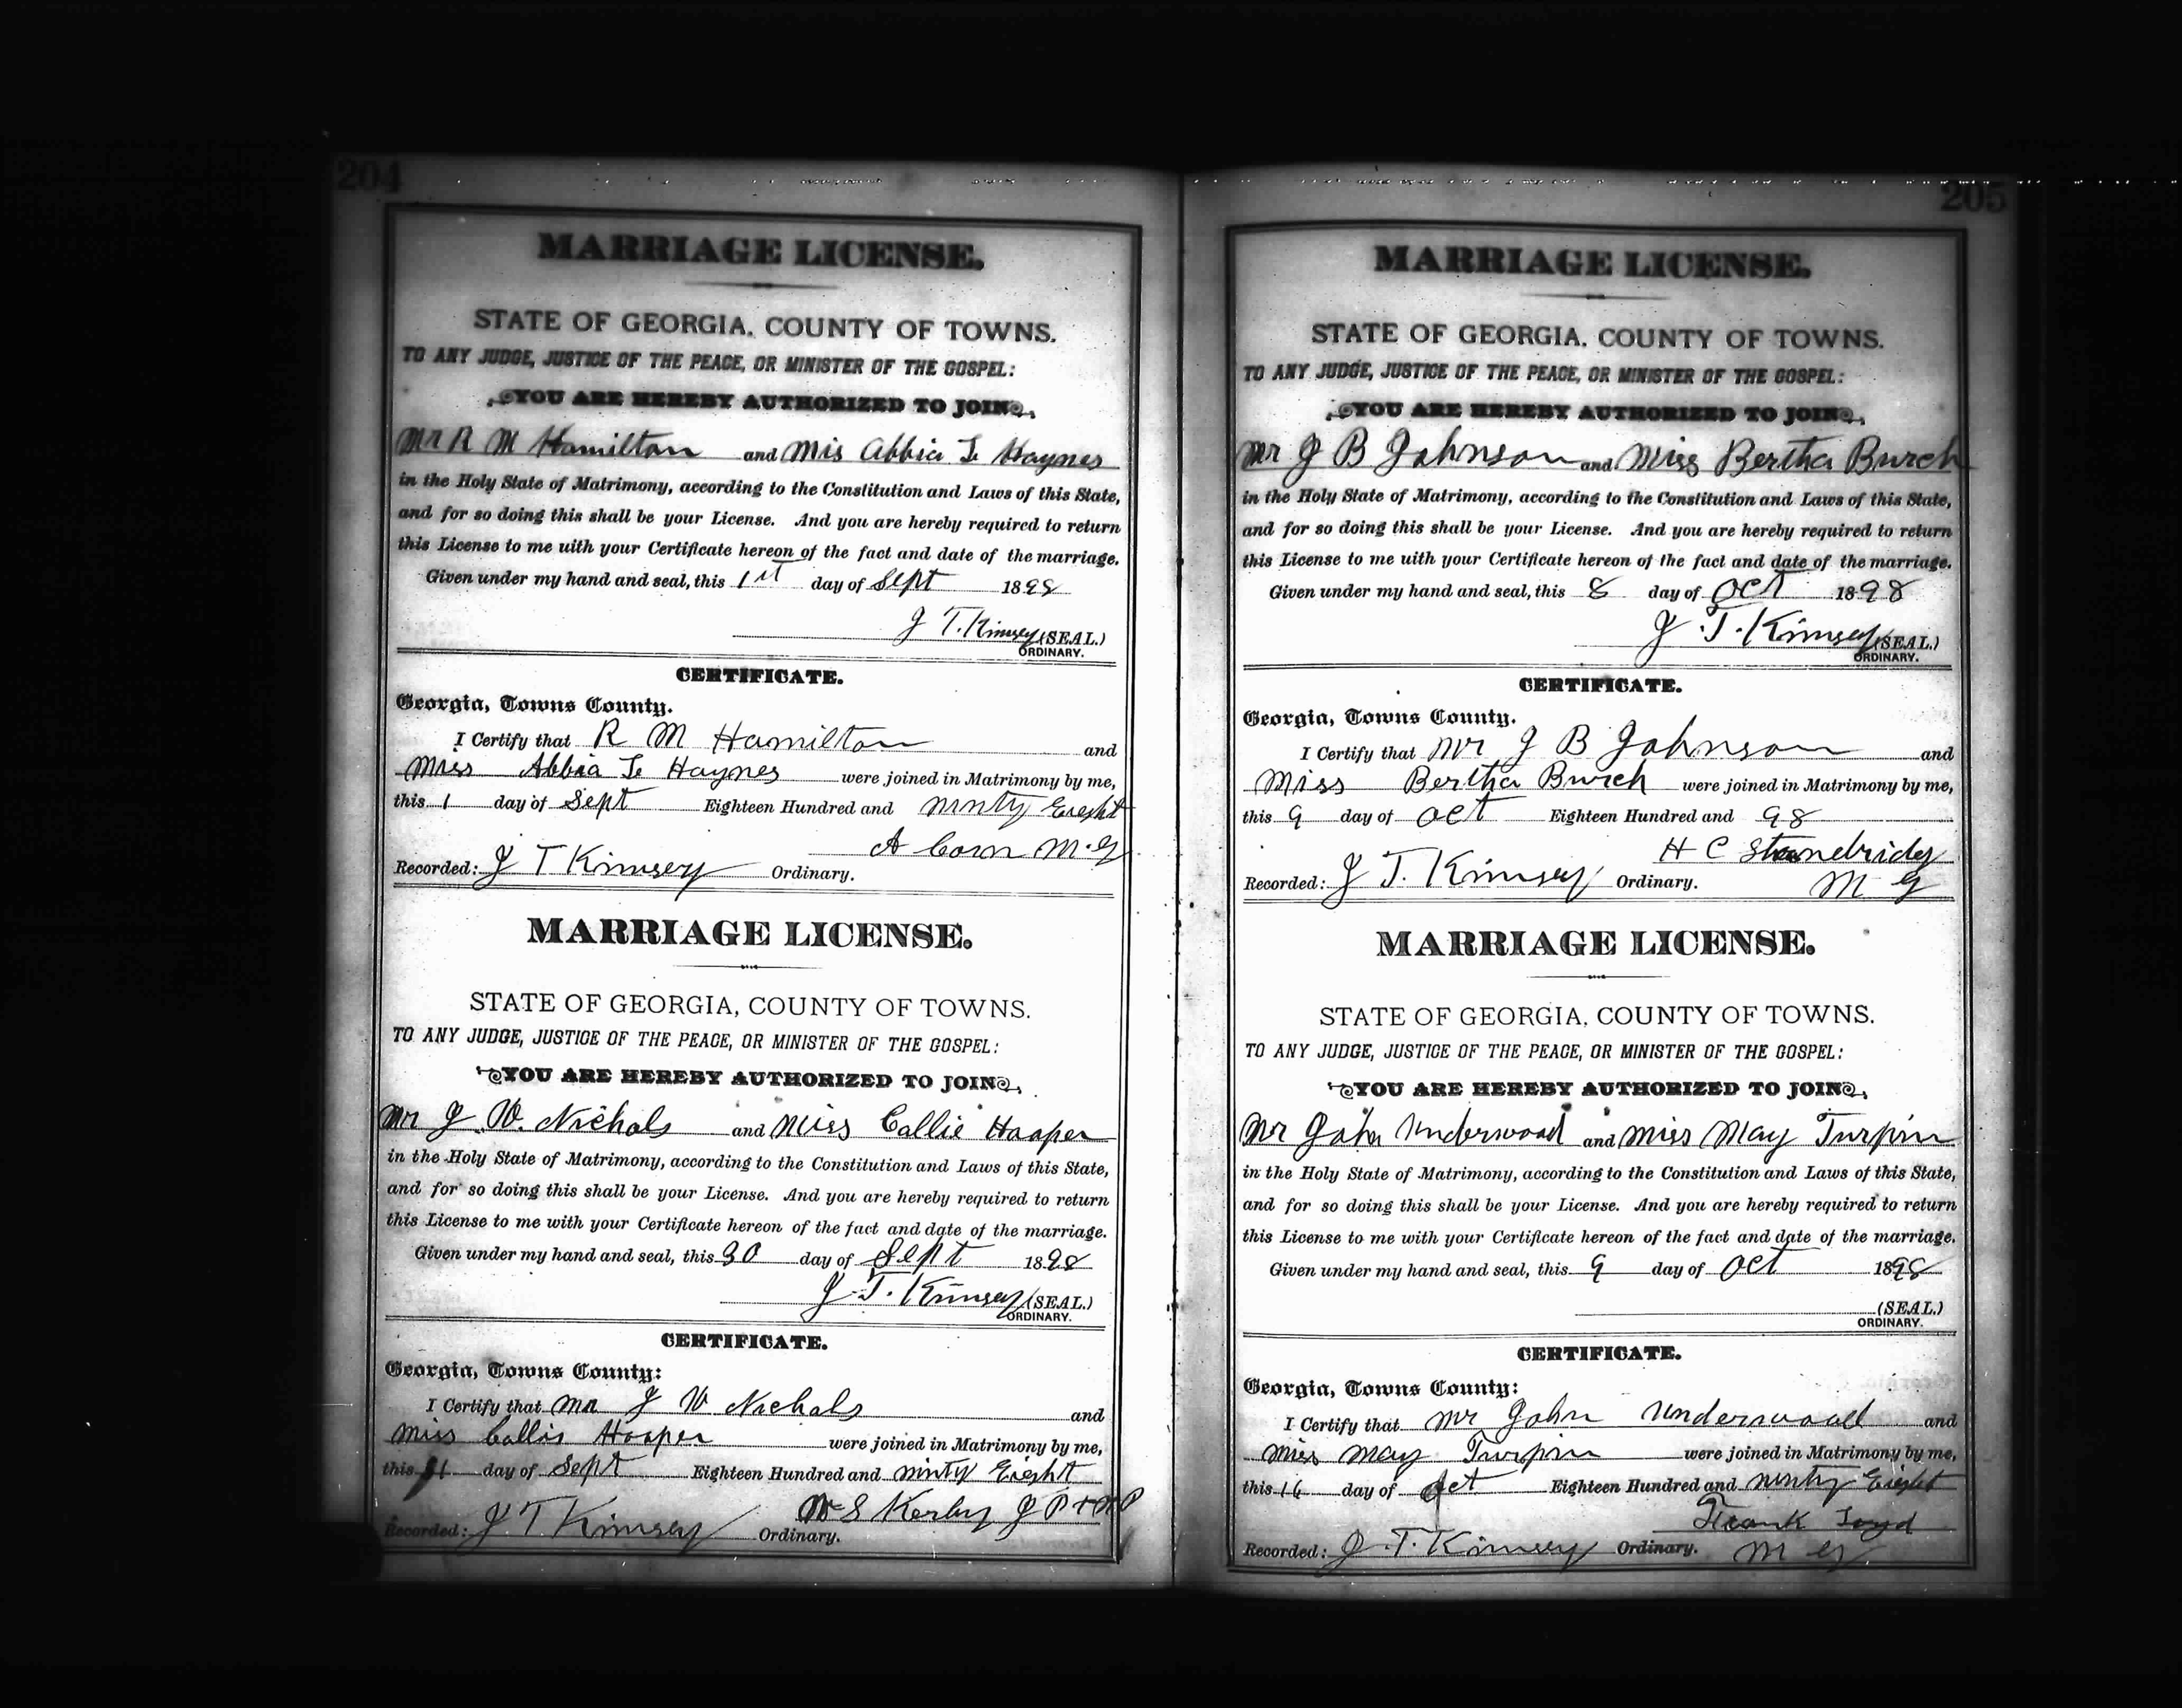 204
MARRIAGE LICENSE.
STATE OF GEORGIA, COUNTY OF TOWNS.
TO ANY JUDGE, JUSTICE OF THE PEACE, OR MINISTER OF THE GOSPEL:
YOU ARE HEREBY AUTHORIZED TO JOIN
Mr R M Hamilton and Mis Abbia Haynes
in the Holy State of Matrimony, according to the Constitution and Laws of this State,
and for so doing this shall be your License. And you are hereby required to return
this License to me with your Certificate hereon of the fact and date of the marriage.
Given under my hand and seal, this 1st day of Sept 1898
J T. Kimsey (SEAL.)
ORDINARY.
CERTIFICATE.
Georgia, Towns County.
I Certify that R M Hamilton and
Miss Abbia Haynes were joined in Matrimony by me,
this 1 day of Sept Eighteen Hundred and ninty Eight
A Corn M.G
Recorded: J T Kimsey Ordinary.
MARRIAGE LICENSE.
STATE OF GEORGIA, COUNTY OF TOWNS.
TO ANY JUDGE, JUSTICE OF THE PEACE, OR MINISTER OF THE GOSPEL:
YOU ARE HEREBY AUTHORIZED TO JOIN
Mr J W. Nichols and Miss Callie Hooper
in the Holy State of Matrimony, according to the Constitution and Laws of this State,
and for so doing this shall be your License. And you are hereby required to return
this License to me with your Certificate hereon of the fact and date of the marriage.
Given under my hand and seal, this 30 day of Sept 1898
J. T. Kimsey (SEAL.)
ORDINARY.
CERTIFICATE.
Georgia, Towns County:
I Certify that Mr J W Nichols and
Miss Callie Hooper were joined in Matrimony by me,
this day of Sept Eighteen Hundred and ninty Eight
W S Kerby J P
Recorded: J T Kimsey Ordinary.
205
MARRIAGE LICENSE.
STATE OF GEORGIA, COUNTY OF TOWNS.
TO ANY JUDGE, JUSTICE OF THE PEACE, OR MINISTER OF THE GOSPEL:
YOU ARE HEREBY AUTHORIZED TO JOIN
Mr J B Johnson and Miss Bertha Burch
in the Holy State of Matrimony, according to the Constitution and Laws of this State,
and for so doing this shall be your License. And you are hereby required to return
this License to me with your Certificate hereon of the fact and date of the marriage.
Given under my hand and seal, this 8 day of Oct 1898
J. T. Kimsey (SEAL.)
ORDINARY.
CERTIFICATE.
Georgia, Towns County.
I Certify that Mr J B Johnson and
Miss Bertha Burch were joined in Matrimony by me,
this 9 day of Oct Eighteen Hundred and 98
H C Standridge
Recorded: J T. Kimsey Ordinary. M G
MARRIAGE LICENSE.
STATE OF GEORGIA, COUNTY OF TOWNS.
TO ANY JUDGE, JUSTICE OF THE PEACE, OR MINISTER OF THE GOSPEL:
YOU ARE HEREBY AUTHORIZED TO JOIN
Mr John Underwood and Miss May Turpin
in the Holy State of Matrimony, according to the Constitution and Laws of this State,
and for so doing this shall be your License. And you are hereby required to return
this License to me with your Certificate hereon of the fact and date of the marriage.
Given under my hand and seal, this 9 day of Oct 1898
(SEAL.)
ORDINARY.
CERTIFICATE.
Georgia, Towns County:
I Certify that Mr John Underwood and
Miss May Turpin were joined in Matrimony by me,
this 16 day of Oct Eighteen Hundred and ninty Eight
Frank
Recorded: J. T. Kimsey Ordinary. M G